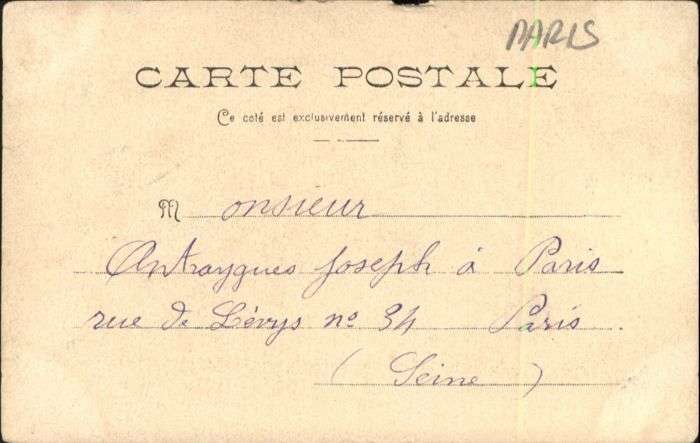 PARIS
CARTE POSTALE
Ce coté est exclusivement réservé à l'adresse
Monsieur
Antraygues Joseph à Paris
rue de Lévys nº 34 Paris.
(Seine)